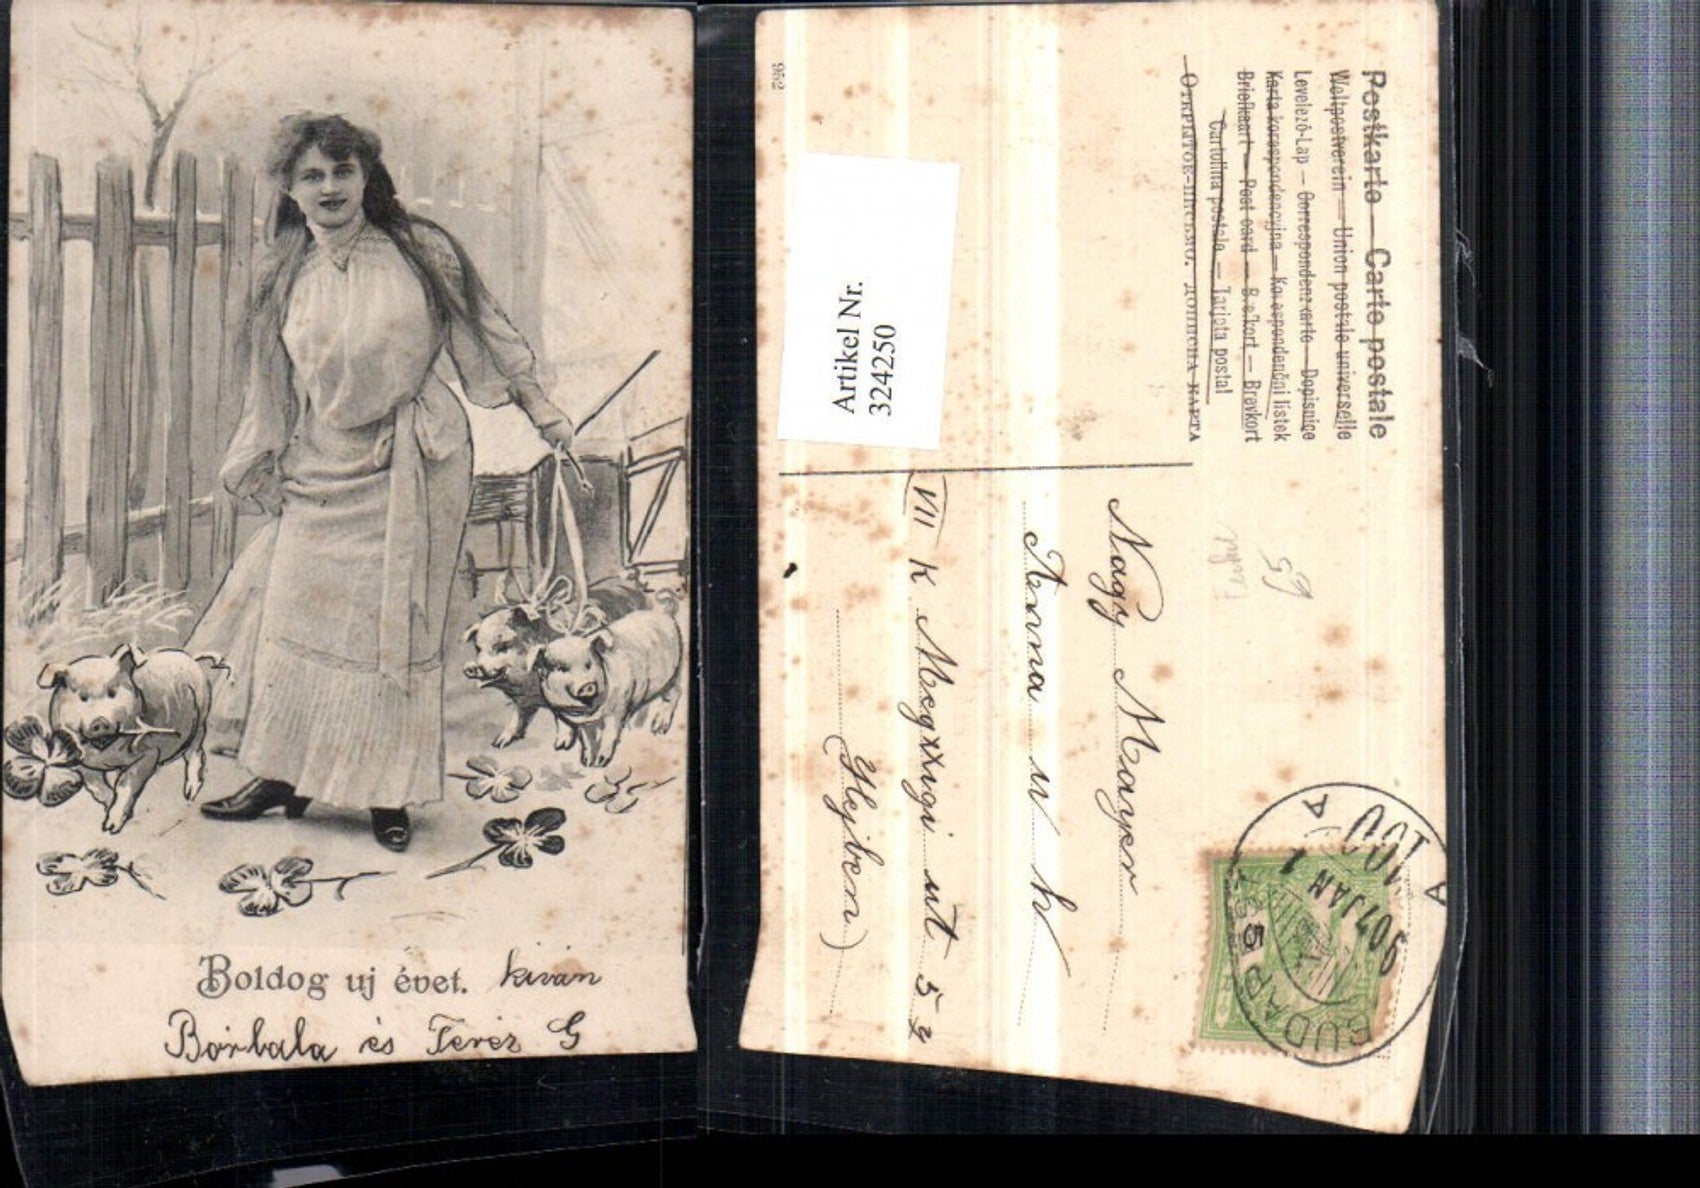 Boldog uj évet. kiván
Borbala és Teréz G
5692
Artikel Nr.
324250
Postkarte — Carte postale
Weltpostverein — Union postale universelle
Levelező-Lap — Correspondenz-carte — Dopisnice
Karta korespondencyjna — Korespondenční listek
Briefkaart — Post card — Brefkort — Brevkort
Cartolina postale — Tarjeta postal
Nagy Mayer
Anna u h
VII K
ut 5 sz
(Hejben)
BUDAPEST 5
907 JAN 1
A
A